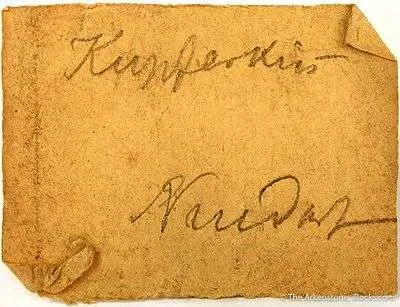 Kupferkies
Neudorf
© The Arkenstone, iRocks.com